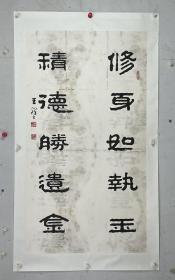 修身如執玉
積德勝遺金